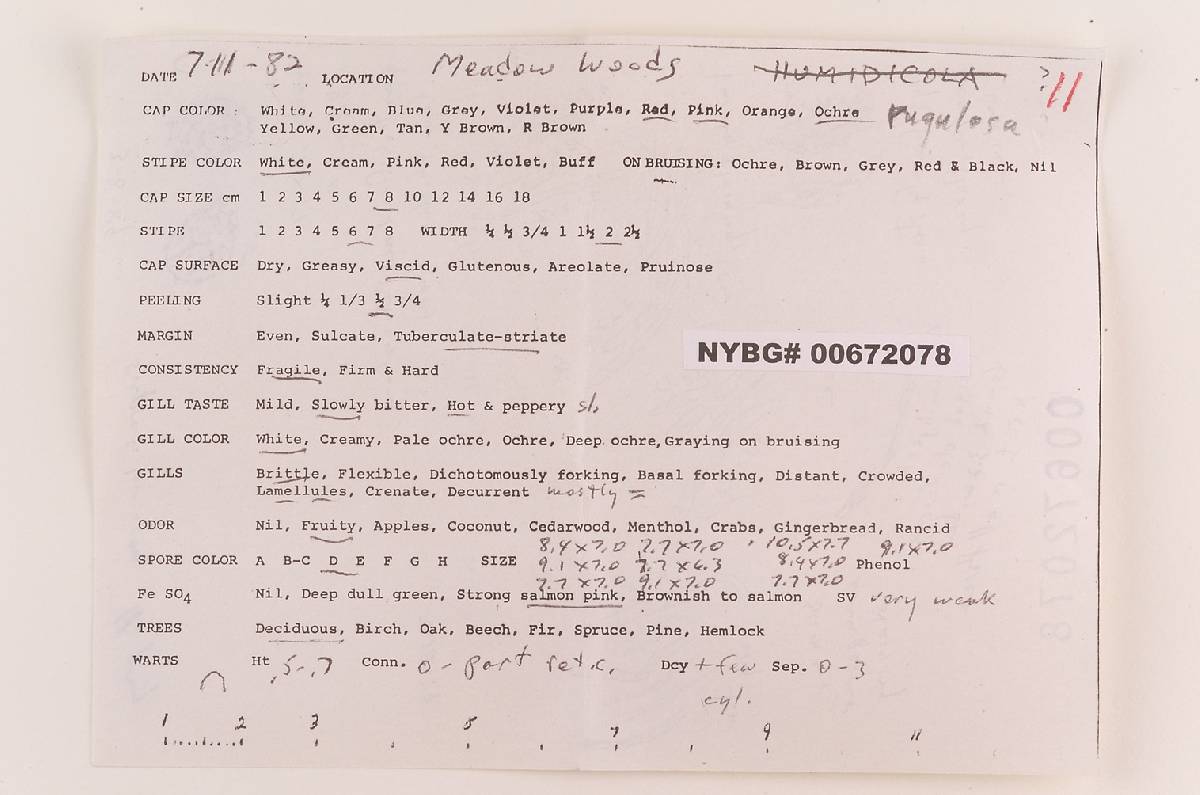 DATE 7-11-82 LOCATION Meadow Woods HUMIDICOLA ? 11
CAP COLOR : White, Cream, Blue, Grey, Violet, Purple, Red, Pink, Orange, Ochre Rugulosa
Yellow, Green, Tan, Y Brown, R Brown
STIPE COLOR White, Cream, Pink, Red, Violet, Buff ON BRUISING: Ochre, Brown, Grey, Red & Black, Nil
CAP SIZE cm 1 2 3 4 5 6 7 8 10 12 14 16 18
STIPE 1 2 3 4 5 6 7 8 WIDTH ¼ ½ 3/4 1 1½ 2 2½
CAP SURFACE Dry, Greasy, Viscid, Glutenous, Areolate, Pruinose
PEELING Slight ¼ 1/3 ½ 3/4
MARGIN Even, Sulcate, Tuberculate-striate
NYBG# 00672078
CONSISTENCY Fragile, Firm & Hard
GILL TASTE Mild, Slowly bitter, Hot & peppery sl,
GILL COLOR White, Creamy, Pale ochre, Ochre, Deep ochre, Graying on bruising
GILLS Brittle, Flexible, Dichotomously forking, Basal forking, Distant, Crowded,
Lamellules, Crenate, Decurrent mostly =
ODOR Nil, Fruity, Apples, Coconut, Cedarwood, Menthol, Crabs, Gingerbread, Rancid
8.4 x 7.0 7.7 x 7.0 10.5 x 7.7 9.1 x 7.0
SPORE COLOR A B-C D E F G H SIZE 9.1 x 7.0 7.7 x 6.3 8.4 x 7.0 Phenol
7.7 x 7.0 9.1 x 7.0 7.7 x 7.0
Fe SO4 Nil, Deep dull green, Strong salmon pink, Brownish to salmon SV very weak
TREES Deciduous, Birch, Oak, Beech, Fir, Spruce, Pine, Hemlock
WARTS Ht .5-.7 Conn. 0 - part retic, Dcy + few Sep. 0-3
cyl.
1 2 3 5 7 9 11